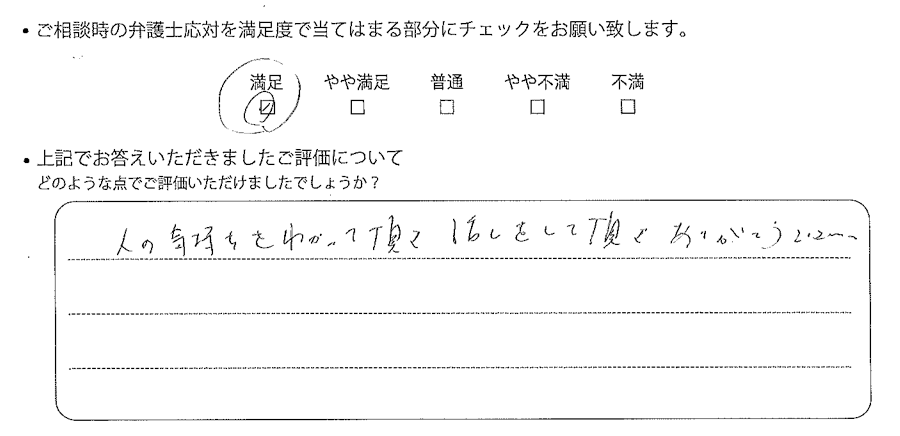 ・ご相談時の弁護士応対を満足度で当てはまる部分にチェックをお願い致します。
満足 やや満足 普通 やや不満 不満
・上記でお答えいただきましたご評価について
どのような点でご評価いただけましたでしょうか？
人の気持ちをわかって頂き 話しをして頂き ありがとう